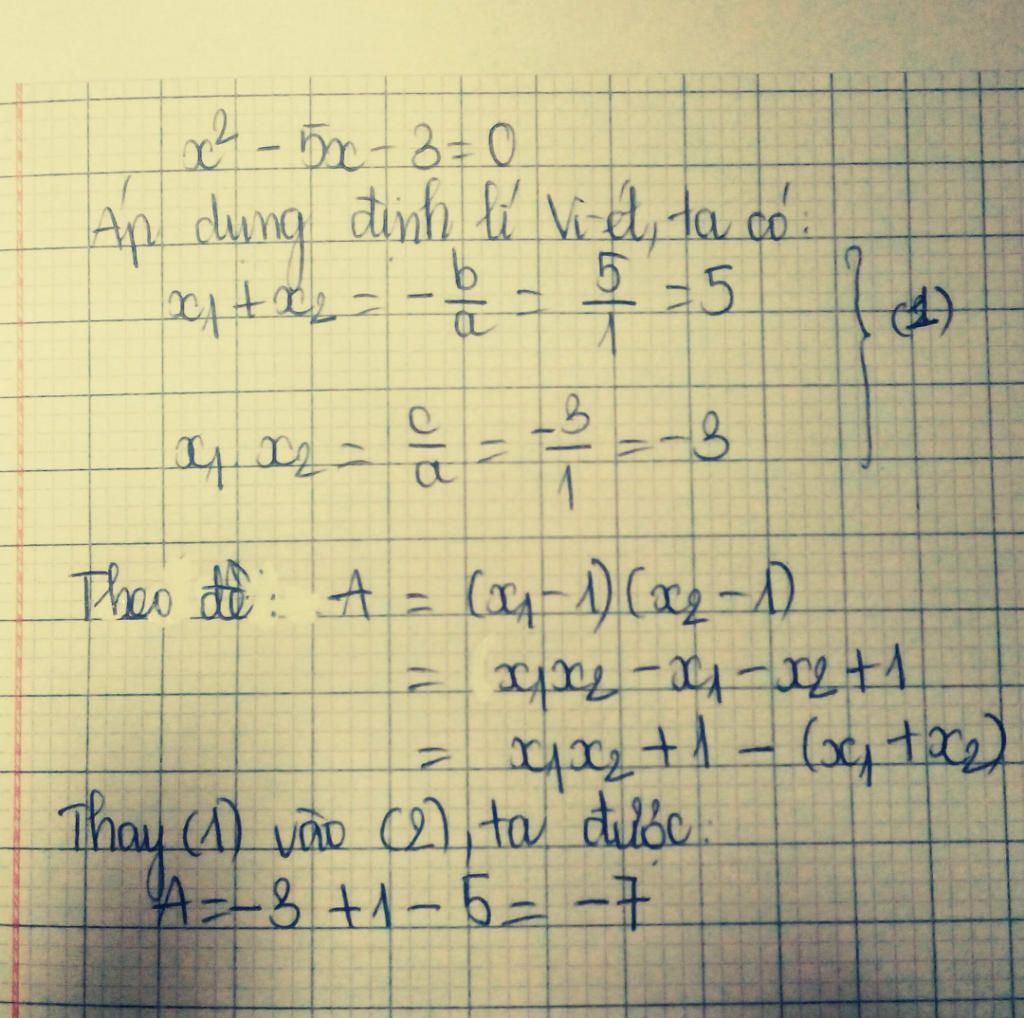 x² - 5x - 3 = 0
Áp dụng định lí Vi-ét, ta có:
x₁ + x₂ = -b/a = 5/1 = 5 } (1)
x₁ x₂ = c/a = -3/1 = -3
Theo đề: A = (x₁ - 1)(x₂ - 1)
= x₁x₂ - x₁ - x₂ + 1
= x₁x₂ + 1 - (x₁ + x₂)
Thay (1) vào (2), ta được:
A = -3 + 1 - 5 = -7